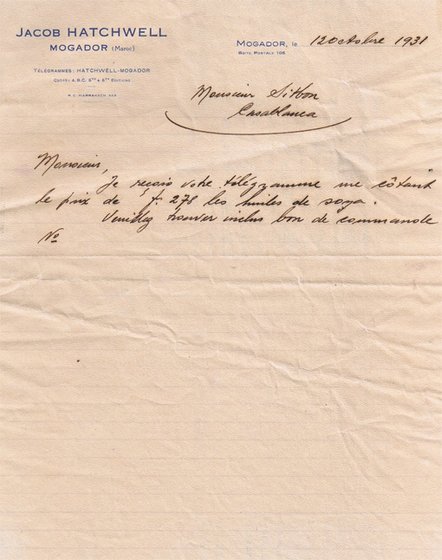 Jacob HATCHWELL
MOGADOR (Maroc)
TÉLÉGRAMMES: HATCHWELL-MOGADOR
CODES: A.B.C. 5ME & 6ME EDITIONS
R.C. MARRAKECH
MOGADOR, le 12 Octobre 1931
BOITE POSTALE 106
Monsieur Sitbon
Casablanca
Monsieur,
Je reçois votre télégramme me côtant
le prix de f. 278 les huiles de soya.
Veuillez trouver inclus bon de commande
No